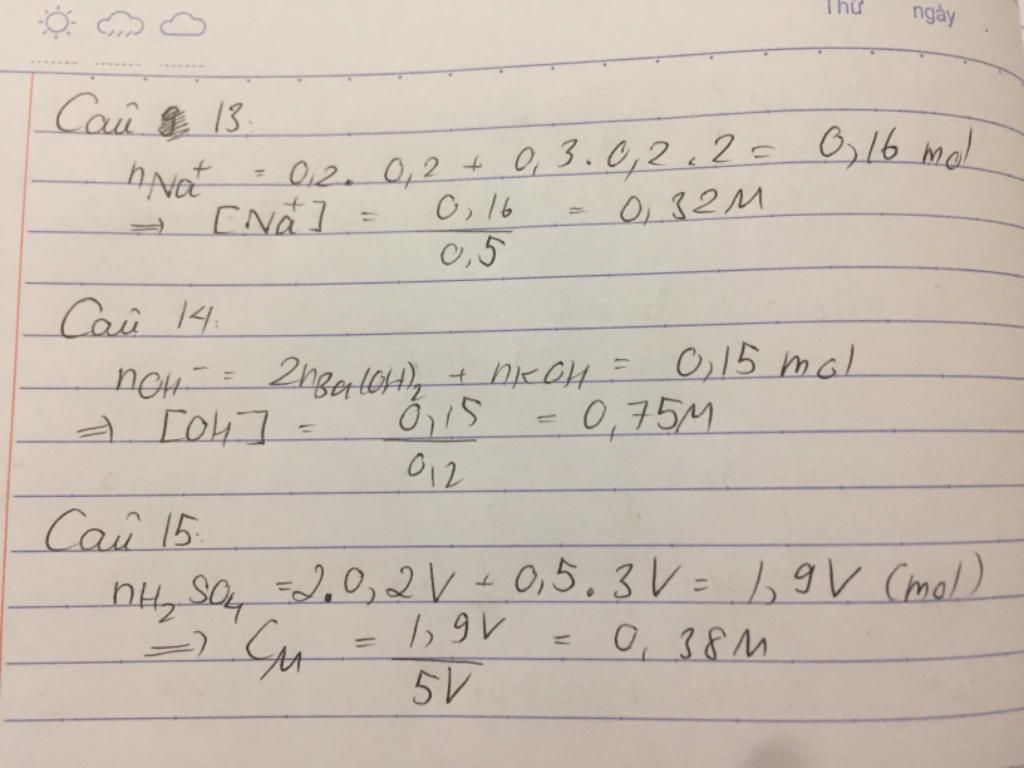 Thứ ngày
Câu 13:
nNa⁺ = 0,2 . 0,2 + 0,3 . 0,2 . 2 = 0,16 mol
⇒ [Na⁺] = 0,16 / 0,5 = 0,32M
Câu 14:
nOH⁻ = 2nBa(OH)₂ + nKOH = 0,15 mol
⇒ [OH] = 0,15 / 0,2 = 0,75M
Câu 15:
nH₂SO₄ = 2.0,2V + 0,5.3V = 1,9V (mol)
⇒ CM = 1,9V / 5V = 0,38M